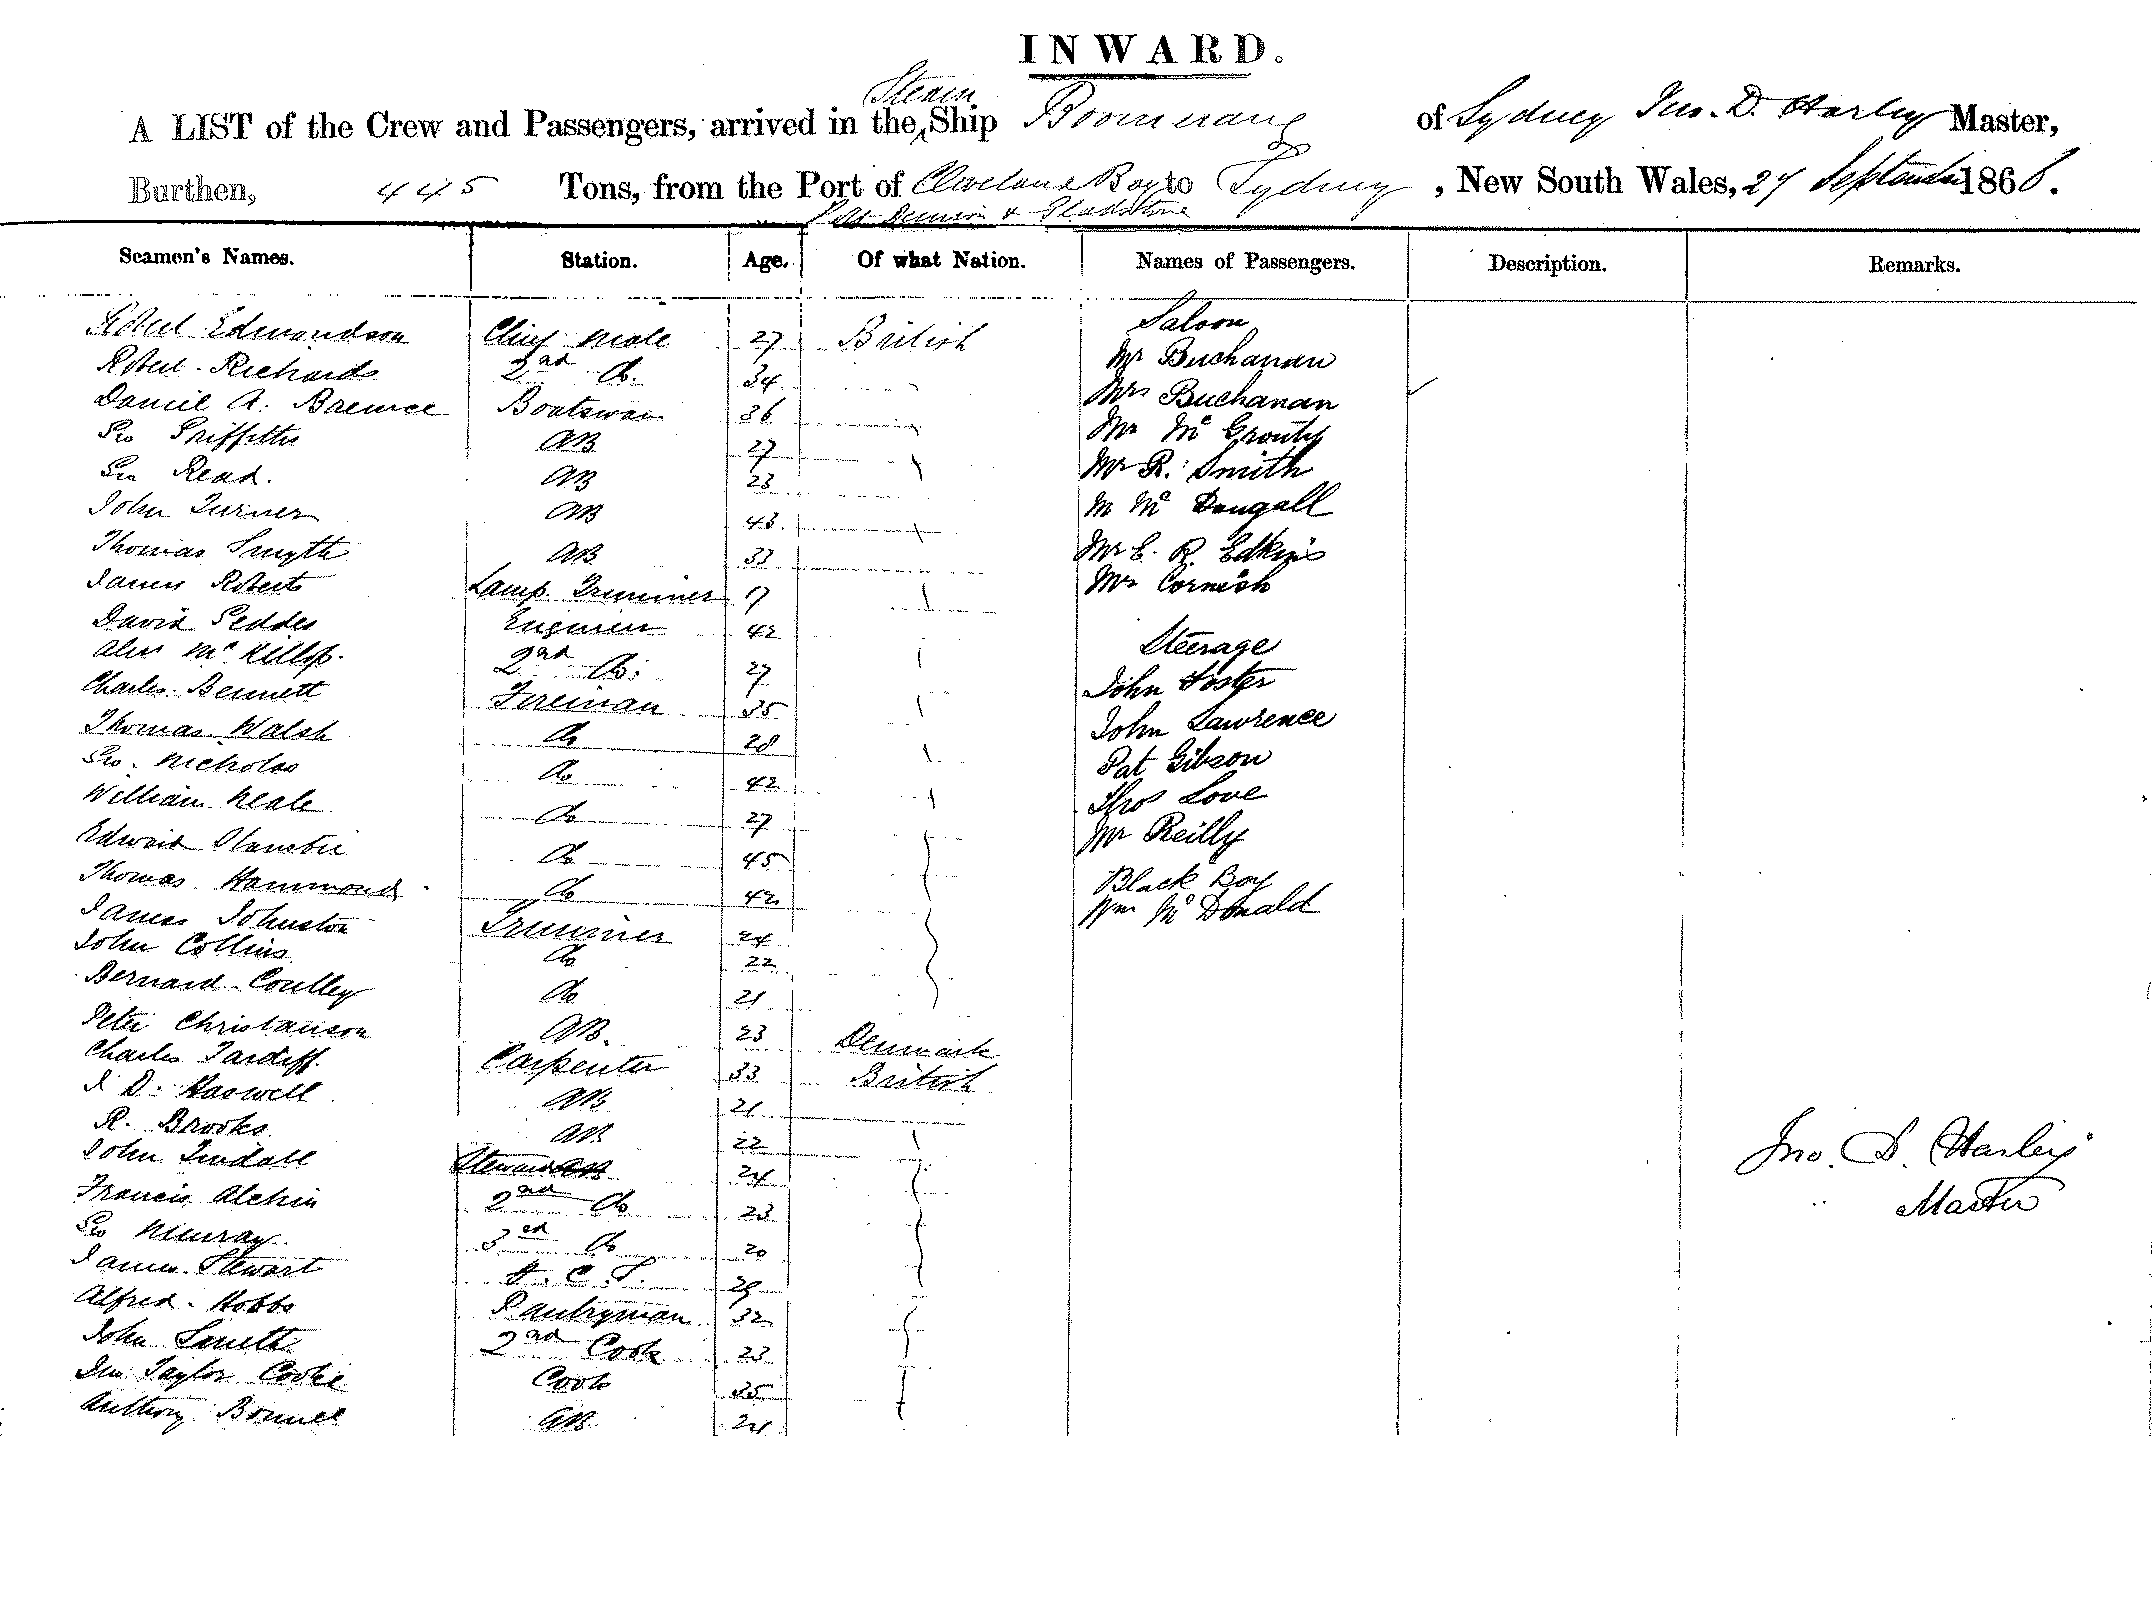 INWARD.
Steam
A LIST of the Crew and Passengers, arrived in the Ship Boomerang of Sydney Jno. D. Harley Master,
Burthen, 445 Tons, from the Port of Cleveland Bay to Sydney, New South Wales, 27 September 1868.
Port Denison & Gladstone
Seamen's Names. Station. Age. Of what Nation. Names of Passengers. Description. Remarks.
Saloon
Robert Edmondson Chief Mate 27 British
Mr Buchanan
Robert Richards 2nd Do. 34
Mrs Buchanan
Daniel A. Boatswain 36
Mr McGrouty
Geo Griffiths AB 27
Mr R. Smith
Geo Read. AB 23
M McDougall
John Turner AB 43
Mr E. R. Edkins
Thomas Smyth AB 33
Mr Cornish
James Roberts Lamp Trimmer 17
David Geddes Engineer 42
Steerage
Alex McKillop. 2nd Do. 27
John Foster
Charles Bennett Fireman 35
John Lawrence
Thomas Walsh Do 28
Pat Gibson
Geo. Nicholas Do 42
Thos Love
William Neale Do 27
Mr Reilly
Edward Do 45
Black Boy
Thomas Hammond Do 42
Wm McDonald
James Johnston Trimmer 24
John Collins Do 22
Bernard Coulley Do 21
Peter Christanson AB. 23 Denmark
Charles Tardiff. Carpenter 33 British
J. D. Haswell AB 21
R. Brooks AB 22
John Tindall Steward 24
Jno. D. Harley
Francis Alchin 2nd Do 23
Master
Geo Murray 3rd Do 20
James Stewart 29
Alfred Hobbs Pantryman 32
John Smith 2nd Cook 23
Taylor Cooke Cook 35
Anthony AB 24